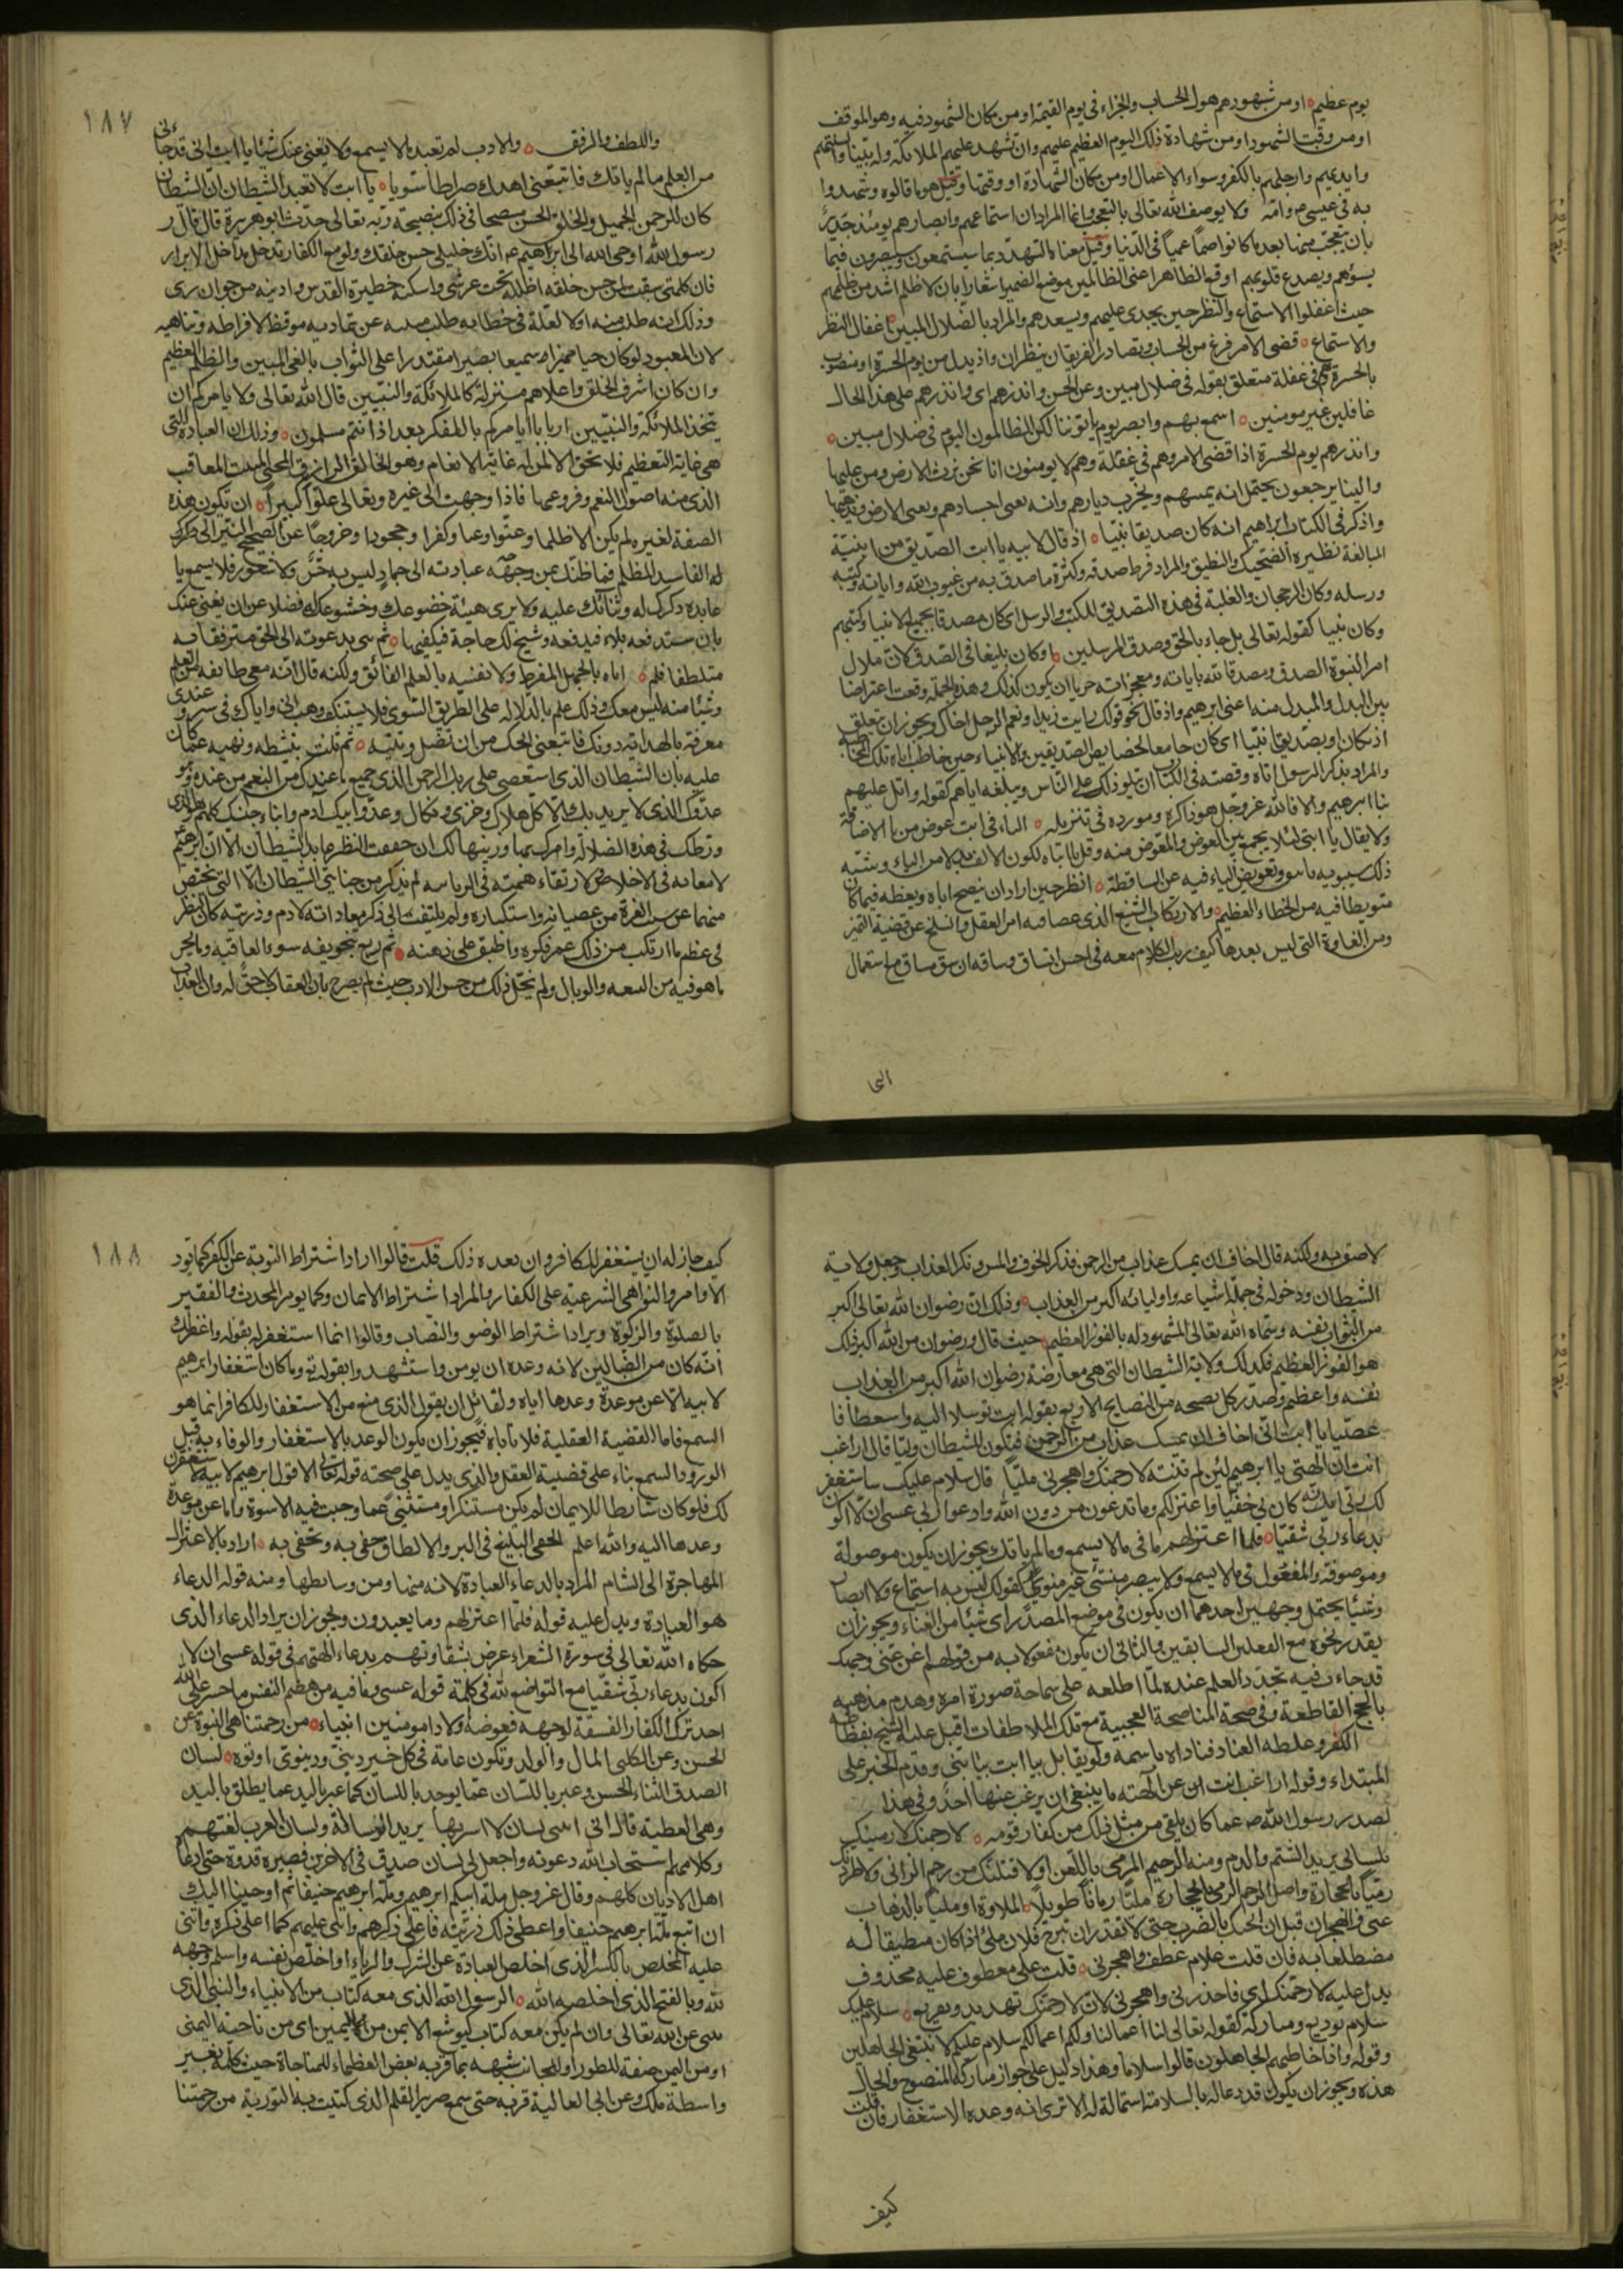 يوم عظيم ه او من شهودهم هول الحساب والجزاء فى يوم القيمة او من مكان الشهود فيه وهو الموقف
او من وقت الشهود او من شهادة ذلك اليوم العظيم عليهم وان تشهد عليهم الملائكة والنبيا والسنتهم
وايديهم وارجلهم بالكفر وسواء الاعمال او من مكان الشهادة او وقتها وقيل هو ما قالوه وشهدوا
به فى عيسى وامه ولا يوصف الله تعالى بالتعجب وانما المراد ان اسماعهم وابصارهم يومئذ جدير
بان يتعجب منهما بعد ما كانوا صما عميا فى الدنيا وقيل معناه التهدد بما سيستمعون ويبصرون فيما
يسوءهم ويصدع قلوبهم اوقع الظاهر اعنى الظالمين موضع الضمير اشعارا بان لا ظلم اشد من ظلمهم
حيث اغفلوا الاستماع والنظر حين يجدى عليهم ويسعدهم والمراد بالضلال المبين اغفال النظر
والاستماع ه قضى الامر فرغ من الحساب وتصادر الفريقان ينظران واذ بدل من يوم الحسرة او منصوب
بالحسرة وهم فى غفلة متعلق بقوله فى ضلال مبين وعن الحسن وانذرهم اى وانذرهم على هذا الحال
غافلين غير مومنين ه اسمع بهم وابصر يوم ياتوننا لكن الظالمون اليوم فى ضلال مبين ه
وانذرهم يوم الحسرة اذ قضى الامر وهم فى غفلة وهم لا يومنون انا نحن نرث الارض ومن عليها
والينا يرجعون يحتمل انه يميتهم ويخرب ديارهم وانه يفنى اجسادهم ويفنى الارض ويذهبها
واذكر فى الكتاب ابراهيم انه كان صديقا نبيا ه اذ قال لابيه يا ابت الصديق من ابنية
المبالغة نظيره الضحيك والنطيق والمراد فرط صدقه وكثرة ما صدق به من غيوب الله واياته وكتبه
ورسله وكان الرجحان والغلبة فى هذه التصديق للكتب والرسل اى كان مصدقا بجميع الانبيا وكتبهم
وكان نبيا كقوله تعالى بل جاء بالحق وصدق المرسلين او كان بليغا فى الصدق لان ملاك
امر النبوة الصدق ومصدق الله باياته ومعجزاته حريا ان يكون كذلك وهذه الجملة وقعت اعتراضا
بين البدل والمبدل منه اعنى ابرهيم واذ قال نحو قولك رايت زيدا ونعم الرجل اخاك ويجوز ان تعلق
اذ بكان او بصديقا نبيا اى كان جامعا لخصايص الصديقين والانبياء حين خاطب اباه تلك المخاطبة
والمراد بذكر الرسول اياه وقصته فى الكتاب ان يتلو ذلك على الناس ويبلغه اياهم كقوله واتل عليهم
نبا ابرهيم والا فالله عز وجل هو ذاكره ومورده فى تنزيله ه التاء فى ابت عوض من يا الاضافة
ولا يقال يا ابتى لئلا يجمع بين العوض والمعوض منه وقيل يا ابتاه لكون الالف بدلا من الياء وشبه
ذلك سيبويه باينق وتعويض الياء فيه عن الساقطة ه انظر حين اراد ان ينصح اباه ويعظه فيما كان
متورطا فيه من الخطاء العظيم والارتكاب الشنيع الذى عصا فيه امر العقل وانسلخ عن قضية التميز
ومن الغباوة التى ليس بعدها كيف رتب الكلام معه فى احسن اتساق وساقه ارشق مساق مع استعمال
التما
١٨٧
واللطف والرفق ه والادب لم تعبد ما لا يسمع ولا يغنى عنك شيئا يا ابت انى قد جاءنى
من العلم ما لم ياتك فاتبعنى اهدك صراطا سويا ه يا ابت لا تعبد الشيطان ان الشيطان
كان للرحمن الجميل والخلق الحسن منتصحا فى ذلك بنصيحة ربه تعالى حدث ابو هريرة قال قال ر
رسول الله اوحى الله الى ابراهيم عم انك خليلى حسن خلقك ولو مع الكفار تدخل مداخل الابرار
فان كلمتى سبقت لمن حسن خلقه اظله تحت عرشى واسكنه حظيرة القدس وادنيه من جوارى
وذلك انه طلب منه اولا العلة فى خطابه طلب منبه عن تماديه موقظ لافراطه وتناهيه
لان المعبود لو كان حيا مميزا سميعا بصيرا مقتدرا على الثواب بالغى المبين والظلم العظيم
وان كان اشرف الخلق واعلاهم منزلة كالملائكة والنبيين قال الله تعالى ولا يامركم ان
تتخذوا الملائكة والنبيين اربابا ايامركم بالكفر بعد اذ انتم مسلمون ه وذلك ان العبادة التى
هى غاية التعظيم فلا تحق الا لمن له غاية الانعام وهو الخالق الرازق المحيى المميت المعاقب
الذى منه اصول النعم وفروعها فاذا وجهت الى غيره وتعالى علوا كبيرا ه ان تكون هذه
الصفة لغيره لم يكن الا ظلما وعتوا وغيا وكفرا وجحودا وخروجا عن الصحيح المنير الى
الفاسد المظلم فما ظنك بمن وجه عبادته الى جماد ليس به حس ولا شعور فلا يسمع يا
عابده ذكرك له وثناءك عليه ولا يرى هيئة خضوعك وخشوعك له فضلا عن ان يغنى عنك
بان تستدفعه بلاء فيدفعه وتسنح لك حاجة فيكفيها ه ثم ثنى بدعوته الى الحق مترفقا به
متلطفا فلم ه اباه بالجهل المفرط ولا نفسه بالعلم الفائق ولكنه قال ان معى طائفة من العلم
وشيئا منه ليس معك وذلك علم بالدلالة على الطريق السوى فلا يستنكف وهب انى واياك فى سير وعندى
معرفة بالهداية دونك فاتبعنى انجك من ان تضل وتتيه ه ثم ثلث بتثبيطه ونهيه عما كان
عليه بان الشيطان الذى استعصى على ربك الرحمن الذى جميع ما عندك من النعم من عنده وهو
عدوك الذى لا يريد بك الا كل هلاك وخزى ونكال وعدو ابيك ادم وابناء جنسك كلهم هو الذى
ورطك فى هذه الضلالة وامرك بها وزينها لك ان حققت النظر عابد الشيطان الا ان ابرهيم
لامعانه فى الاخلاص لارتقاء همته فى الربانية لم يذكر من جنايتى الشيطان الا التى تختص
منهما من عصيانه واستكباره ولم يلتفت الى ذكر معاداته لادم وذريته كان النظر
فى عظم ما ارتكب من ذلك غمر فكره واطبق على ذهنه ه ثم ربع بتخويفه سوء العاقبة وما يجر
ما هو فيه من التبعة والوبال ولم يخل ذلك من حسن الادب حيث لم يصرح بان العقاب لاحق له وان العذاب
لاصق به ولكنه قال اخاف ان يمسك عذاب من الرحمن فذكر الخوف والمس ونكر العذاب وجعل ولاية
الشيطان ودخوله فى جملة اشياعه واوليائه اكبر من العذاب ه وذلك ان رضوان الله تعالى اكبر
من الثواب نفسه وسماه الله تعالى المشهود له بالفوز العظيم حيث قال ورضوان من الله اكبر ذلك
هو الفوز العظيم فكذلك ولاية الشيطان التى هى معارضة رضوان الله اكبر من العذاب
نفسه واعظم وصدر كل نصيحة من النصايح الاربع بقوله يا ابت توسلا اليه واستعطافا
عصيا يا ابت انى اخاف ان يمسك عذاب من الرحمن فتكون للشيطان وليا قال اراغب
انت عن الهتى يا ابرهيم لئن لم تنته لارجمنك واهجرنى مليا قال سلام عليك ساستغفر
لك ربى انه كان بى حفيا واعتزلكم وما تدعون من دون الله وادعوا ربى عسى ان لا اكون
بدعاء ربى شقيا ه فلما اعتزلهم ما فى ما لا يسمع وما لم ياتك يجوز ان يكون موصولة
وموصوفة والمفعول فى لا يسمع ولا يبصر منسى غير منوى كقولك ليس به استماع ولا ابصار
وشيئا يحتمل وجهين احدهما ان يكون فى موضع المصدر اى شيئا من الغناء ويجوز ان
يقدر نحوه مع الفعلين السابقين والثانى ان يكون مفعولا به من قولهم اغن عنى وجهك
قد جاءنى فيه تجدد العلم عنده لما اطلعه على سماجة صورة امره وهدم مذهبه
بالحجج القاطعة وفى صحة المناصحة العجيبة مع تلك الملاطفات اقبل عليه الشيخ بفظاظة
الكفر وغلظة العناد فناداه باسمه ولم يقابل يا ابت بيا بنى وقدم الخبر على
المبتداء وقوله اراغب انت عن الهته ما ينبغى ان يرغب عنها احد وفى هذا
لصدر رسول الله صم عما كان يلقى من مثل ذلك من كفار قومه ه لارجمنك لارمينك
بلسانى يريد الشتم والذم ومنه الرجيم المرمى باللعن او لاقتلنك من رجم الزانى ولاطردنك
رميا بالحجارة واصل الرجم الرمى بالحجارة مليا زمانا طويلا الملاوة او مليا بالذهاب
عنى والهجران قبل ان اثخنك بالضرب حتى لا تقدر ان تبرح فلان ملى اذا كان مطيقا له
مضطلعا به فان قلت علام عطف واهجرنى ه قلت على معطوف عليه محذوف
يدل عليه لارجمنك اى فاحذرنى واهجرنى لان لارجمنك تهديد وتقريع ه سلام عليك
سلام توديع ومتاركة كقوله تعالى لنا اعمالنا ولكم اعمالكم سلام عليكم لا نبتغى الجاهلين
وقوله واذا خاطبهم الجاهلون قالوا سلاما وهذا دليل على جواز متاركة المنصوح والحال
هذه ويجوز ان يكون قد دعا له بالسلامة استمالة له الا ترى انه وعده الاستغفار فان قلت
كيف
١٨٨
كيف جاز له ان يستغفر للكافر وان يعده ذلك قلت قالوا اراد اشتراط التوبة عن الكفر كما تود
الاوامر والنواهى الشرعية على الكفار والمراد اشتراط الايمان وكما يومر المحدث والفقير
بالصلوة والزكوة ويراد اشتراط الوضو والنصاب وقالوا انما استغفر له بقوله واغفر لابى
انه كان من الضالين لانه وعده ان يومن واستشهدوا بقوله تع وما كان استغفار ابرهيم
لابيه الا عن موعدة وعدها اياه ولقائل ان يقول الذى منع من الاستغفار للكافر انما هو
السمع فاما القضية العقلية فلا تاباه فيجوز ان يكون الوعد بالاستغفار والوفاء به قبل
الورود السمع بناء على قضية العقل والذى يدل على صحته قوله تعالى الا قول ابرهيم لابيه لاستغفرن
لك فلو كان شارطا للايمان لم يكن مستنكرا ومستثنى عما وجبت فيه الاسوة واما عن موعدة
وعدها اليه والله اعلم الحفى البليغ فى البر والالطاف حفى به وتحفى به ه اراد بالاعتزال
المهاجرة الى الشام المراد بالدعاء العبادة لانه منها ومن وسايطها ومنه قوله الدعاء
هو العبادة ويدل عليه قوله فلما اعتزلهم وما يعبدون ويجوز ان يراد الدعاء الذى
حكاه الله تعالى فى سورة الشعراء عرض بشقاوتهم بدعاء الهتهم فى قوله عسى ان لا
اكون بدعاء ربى شقيا مع التواضع لله فى كلمة قوله عسى وما فيه من هضم النفس ما خسر على الله
احد ترك الكفار الفسقة لوجهه فعوضه اولادا مومنين انبياء ه من رحمتنا هى النبوة عن
الحسن وعن الكلبى المال والولد وتكون عامة فى كل خير دينى ودنيوى اوتوه ه لسان
الصدق الثناء الحسن وعبر باللسان عما يوجد باللسان كما عبر باليد عما يطلق باليد
وهى العطية قال انى اتتنى لسان لا اسر بها يريد الرسالة ولسان العرب لغتهم
وكلامهم استجاب الله دعوته واجعل لى لسان صدق فى الاخرين فصيره قدوة حتى ادعاه
اهل الاديان كلهم وقال عز وجل ملة ابيكم ابرهيم وملة ابرهيم حنيفا ثم اوحينا اليك
ان اتبع ملة ابرهيم حنيفا واعطى ذلك ذريته فاعلى ذكرهم واثنى عليهم كما اعلى ذكره واثنى
عليه المخلص بالكسر الذى اخلص العبادة عن الشرك والرياء او اخلص نفسه واسلم وجهه
لله وبالفتح الذى اخلصه الله ه الرسول الذى معه كتاب من الانبياء والنبى الذى
ينبى عن الله تعالى وان لم يكن معه كتاب كيوشع الايمن من اليمين اى من ناحية اليمنى
او من اليمن صفة للطور او للجانب شبهه بما قربه بعض العظماء للمناجاة حيث كلمه بغير
واسطة ملك وعن ابى العالية قربه حتى سمع صرير القلم الذى كتبت به التورية من رحمتنا